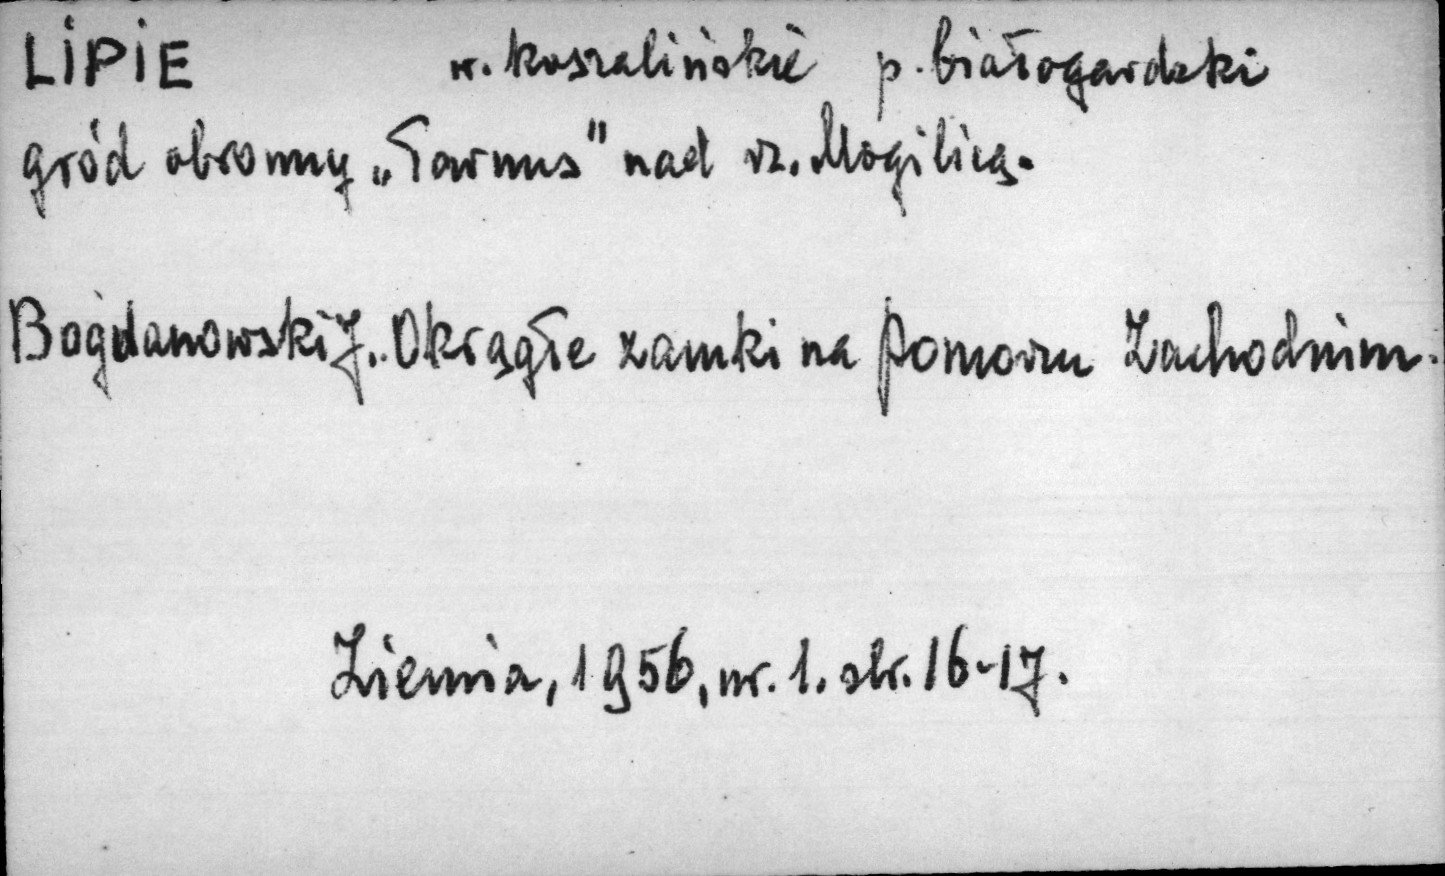 LIPIE w. koszalińskie p. białogardzki
gród obronny „Tarnus" nad rz. Mogilicą.
Bogdanowski J.. Okrągłe zamki na Pomorzu Zachodnim.
Ziemia, 1956, nr. 1. str. 16-17.